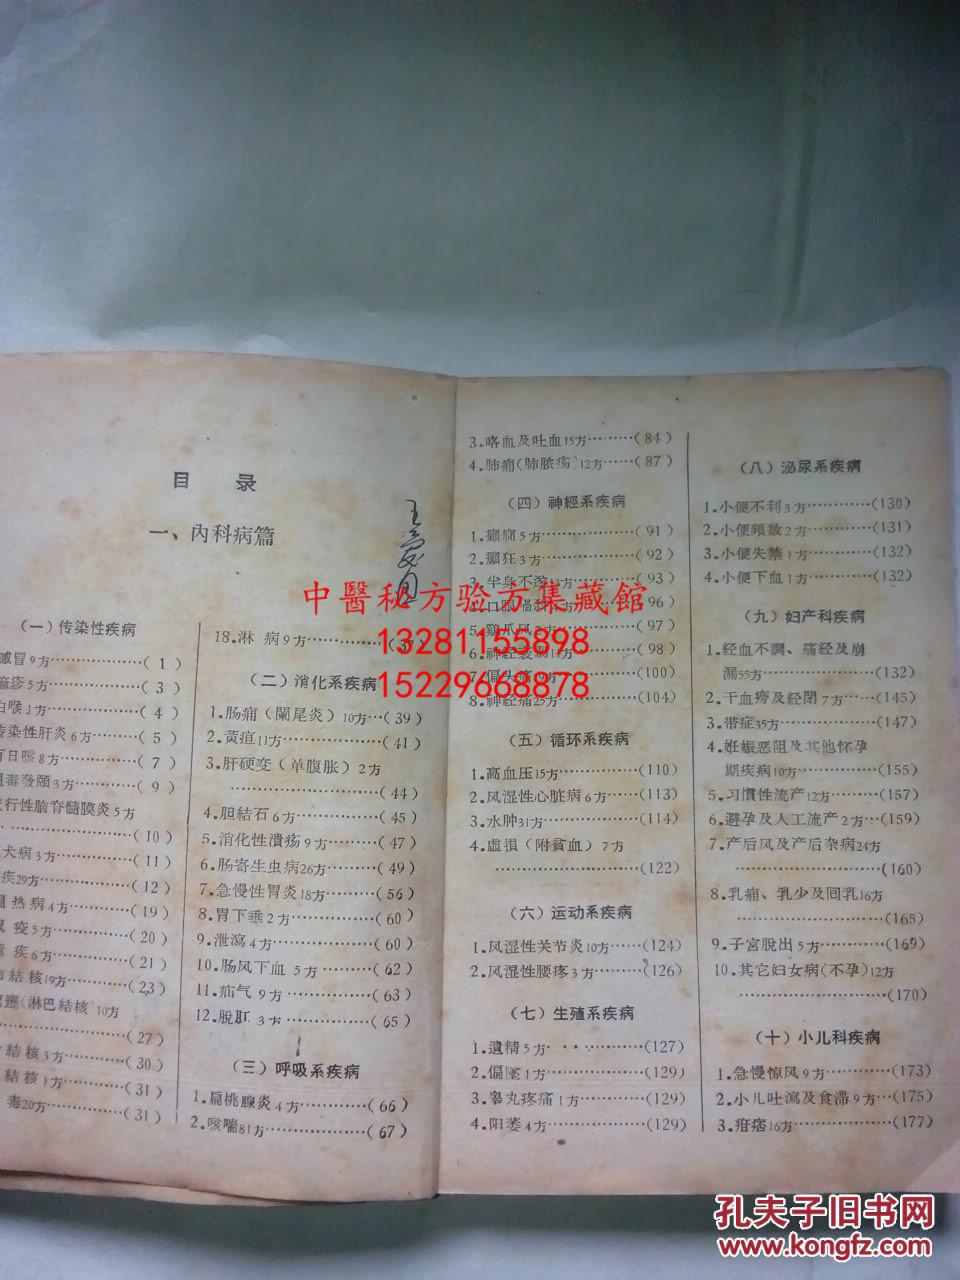 目 录
一、內科病篇
(一)传染性疾病
感冒9方……………(1)
麻疹5方……………(3)
白喉1方……………(4)
传染性肝炎6方……(5)
百日咳8方…………(7)
发颐3方……(9)
流行性脑脊髓膜炎5方
……………(10)
犬病3方…………(11)
疾29方…………(12)
热病4方………(19)
疫5方…………(20)
疾6方…………(21)
結核19方………(23)
(淋巴結核)10方
……………(27)
結核3方………(30)
結核1方………(31)
毒20方…………(31)
18.淋 病9方……………(37)
(二)消化系疾病
1.肠痈(闌尾炎)10方…(39)
2.黄疸11方……………(41)
3.肝硬变(单腹胀)2方
……………(44)
4.胆結石6方…………(45)
5.消化性潰疡9方……(47)
6.肠寄生虫病26方……(49)
7.急慢性胃炎18方……(56)
8.胃下垂2方…………(60)
9.泄瀉4方……………(60)
10.肠风下血5方………(62)
11.疝气9方……………(63)
12.脫肛3方……………(65)
(三)呼吸系疾病
1.扁桃腺炎4方………(66)
2.咳喘81方……………(67)
3.咯血及吐血15方………(84)
4.肺痈(肺脓疡)12方……(87)
(四)神經系疾病
1.癲痫5方……………(91)
2.癲狂3方……………(92)
3.半身不遂13方………(93)
4.口眼喎斜方………(96)
5.鷄爪风方…………(97)
6.神經衰弱11方………(98)
7.偏头痛9方…………(100)
8.神經痛25方…………(104)
(五)循环系疾病
1.高血压15方…………(110)
2.风湿性心脏病6方……(113)
3.水肿31方……………(114)
4.虛損(附貧血)7方
……………(122)
(六)运动系疾病
1.风湿性关节炎10方……(124)
2.风湿性腰疼3方………(126)
(七)生殖系疾病
1.遺精5方……………(127)
2.偏墜1方……………(129)
3.睾丸疼痛1方………(129)
4.阳萎4方……………(129)
(八)泌尿系疾病
1.小便不利3方………(130)
2.小便頻数2方………(131)
3.小便失禁1方………(132)
4.小便下血1方………(132)
(九)妇产科疾病
1.經血不調、痛經及崩
漏55方……………(132)
2.干血痨及經閉7方……(145)
3.带症35方……………(147)
4.妊娠恶阻及其他怀孕
期疾病10方…………(155)
5.习慣性流产12方……(157)
6.避孕及人工流产2方…(159)
7.产后风及产后杂病24方
……………(160)
8.乳痈、乳少及回乳16方
……………(165)
9.子宮脫出5方………(169)
10.其它妇女病(不孕)12方
……………(170)
(十)小儿科疾病
1.急慢惊风9方………(173)
2.小儿吐瀉及食滞9方…(175)
3.疳痞16方……………(177)
中醫秘方验方集藏館
13281155898
15229668878
孔夫子旧书网
www.kongfz.com